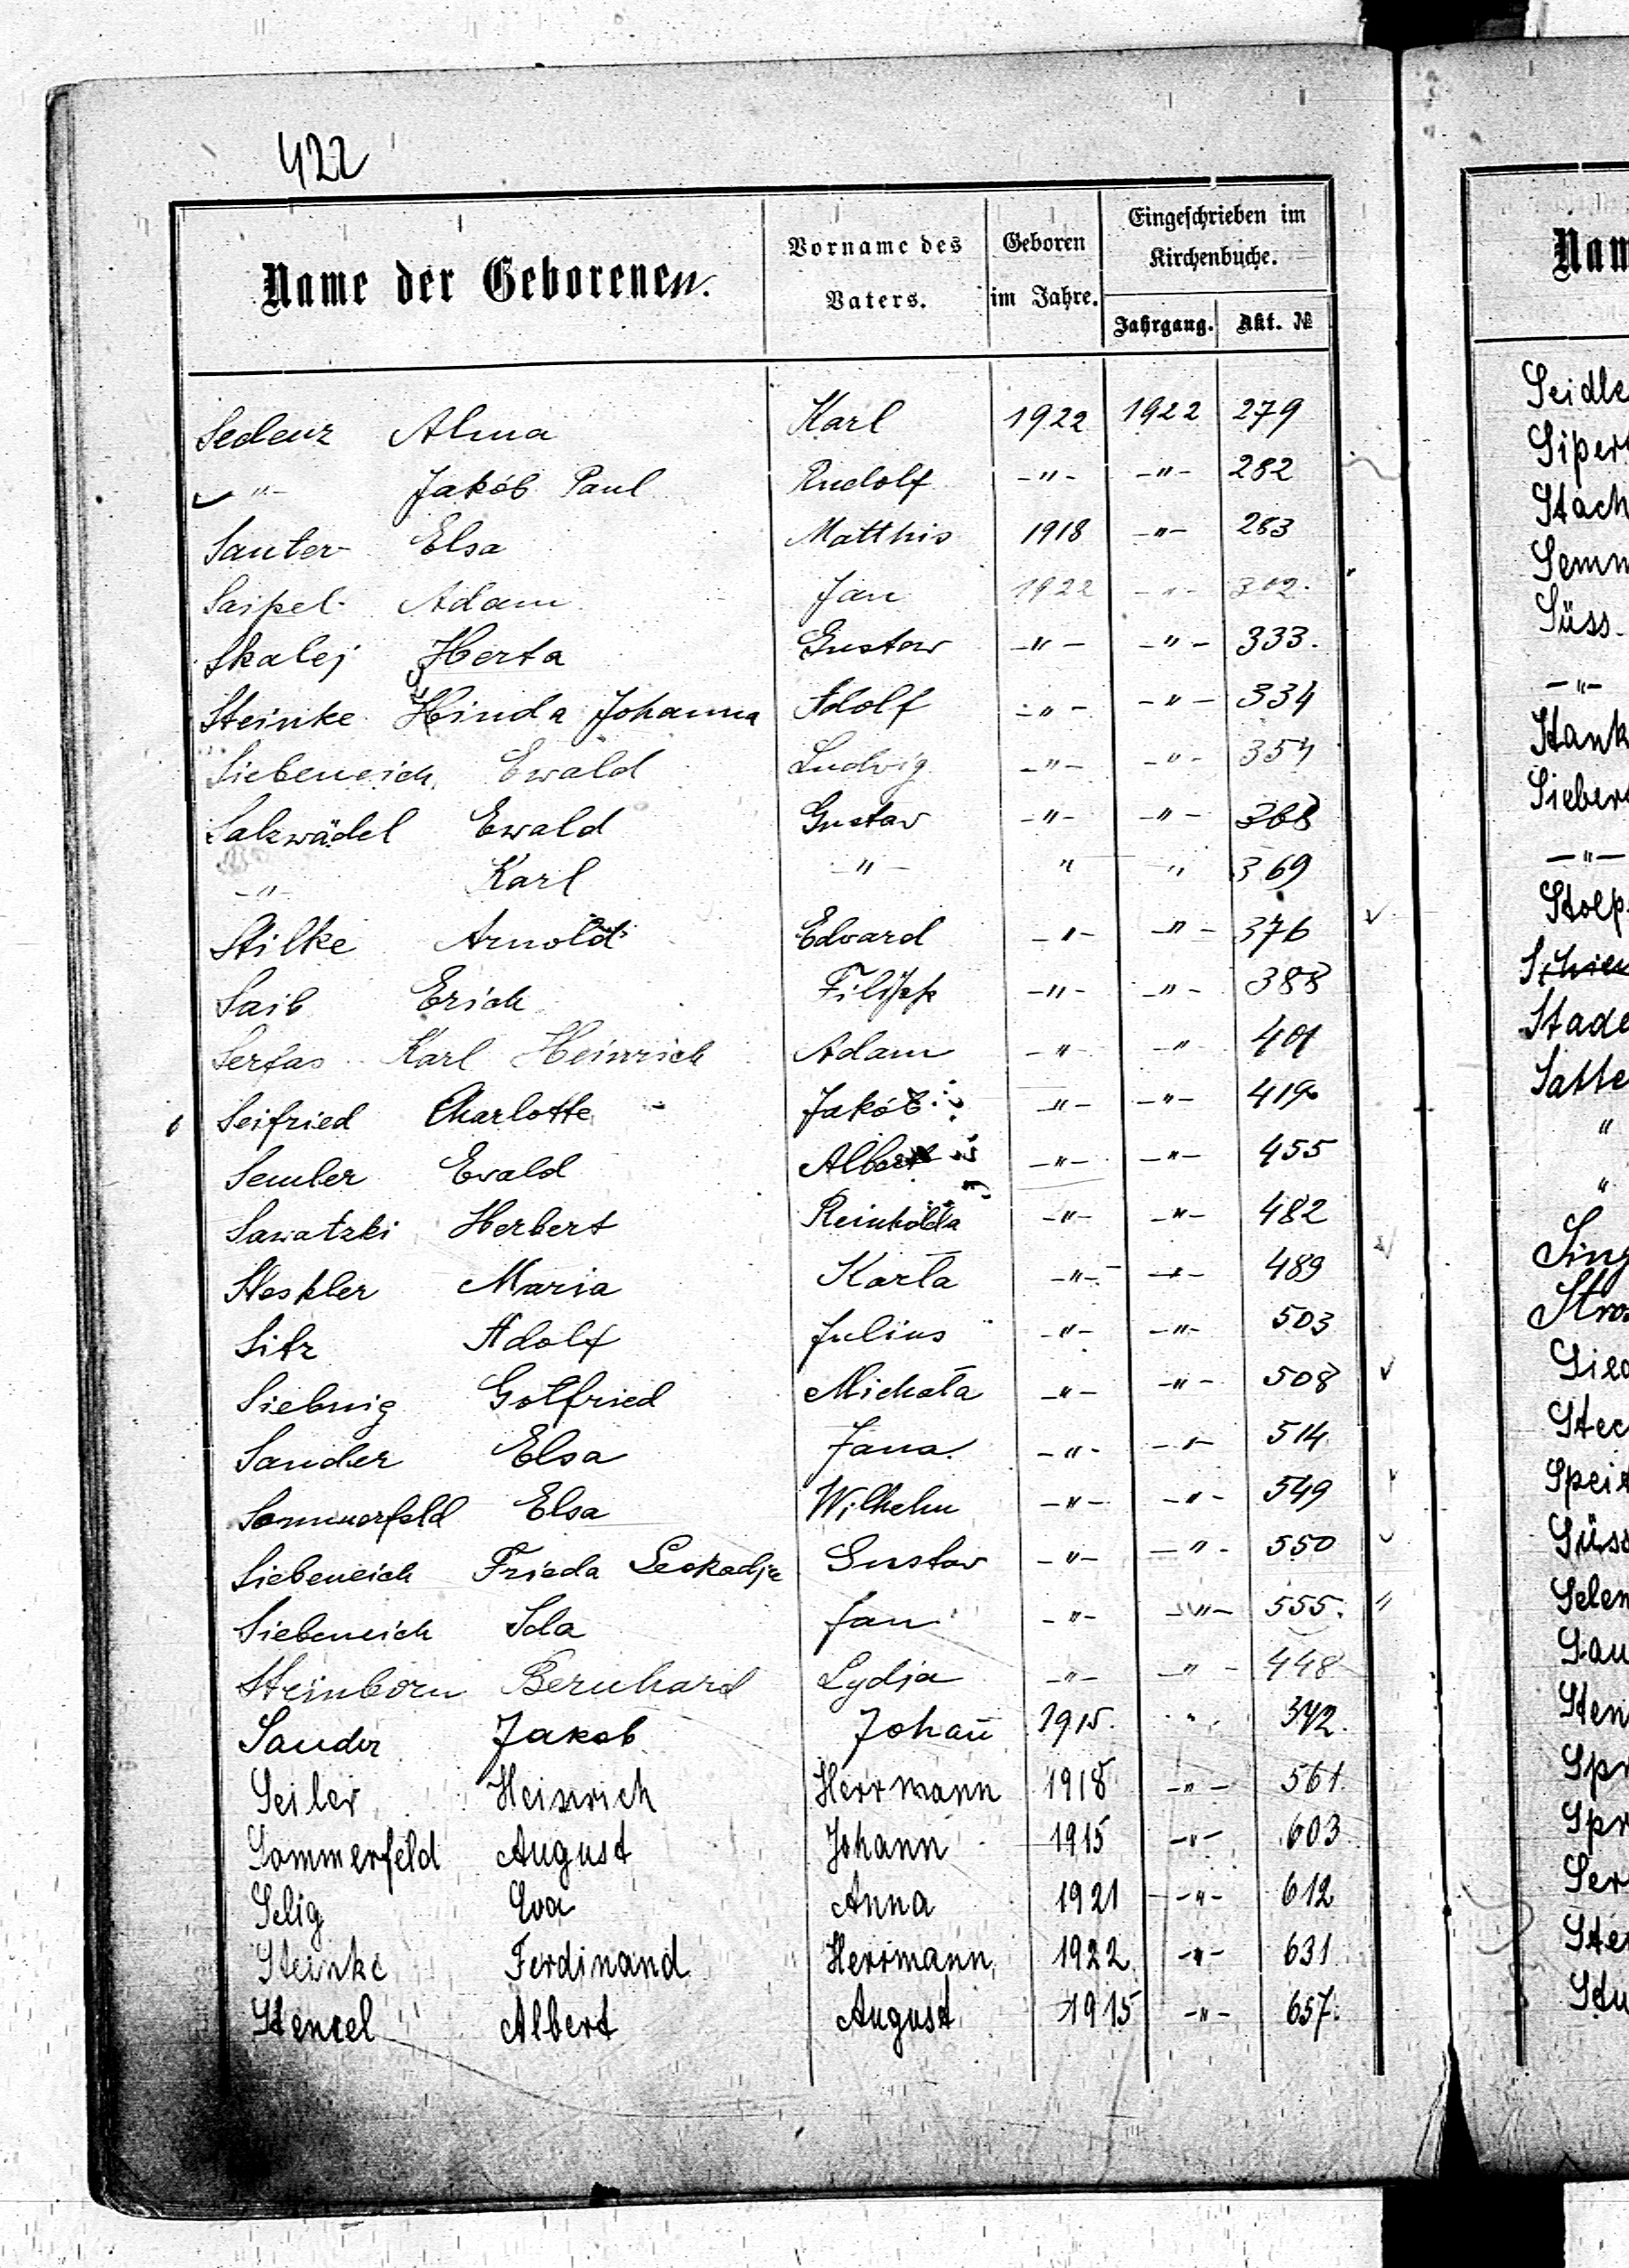 422
Name der Geborenen.
Vorname des Vaters.
Geboren im Jahre.
Eingeschrieben im Kirchenbuche.
Jahrgang. Akt. №
Sedenz Alma Karl 1922 1922 279
-"- Jakób Paul Rudolf -"- -"- 282
Sauter Elsa Matthis 1918 -"- 283
Saipel Adam Jan 1922 -"- 302.
Skalej Herta Gustaw -"- -"- 333.
Steinke Hinda Johanna Adolf -"- -"- 334
Siebeneich Ewald Ludvig -"- -"- 354
Salzwädel Ewald Gustav -"- -"- 368
-"- Karl -"- " -"- 369
Stilke Arnold Edvard -"- -"- 376
Saib Erich Filipp -"- -"- 388
Serfas Karl Heinrich Adam -"- -"- 401
Seifried Charlotte Jakób -"- -"- 419
Semler Evald Albert -"- -"- 455
Sawatzki Herbert Reinholda -"- -"- 482
Maria Karła -"- -"- 489
Sitz Adolf Julius -"- -"- 503
Siebnig Gotfried Michała -"- -"- 508
Sander Elsa Jana -"- -"- 514
Sommerfeld Elsa Wilhelm -"- -"- 549
Siebeneich Frieda Leokadja Gustav -"- -"- 550
Siebeneich Ida Jan -"- -"- 555.
Steinborn Bernhard Lydja -"- -"- 448
Sander Jakob Johan̄ 1915. " 342.
Seiler Heinrich Herrmann 1918 -"- 561.
Sommerfeld August Johann 1915 -"- 603
Selig Eva Anna 1921 -"- 612
Steinke Ferdinand Herrmann 1922 -"- 631
Stencel Albert August 1915 -"- 657.
Nam
Seidle
Siper
Stach
Semm
Süss
-"-
Stank
Sieber
-"-
Stolp
Stade
Satte
"
"
Sing
Stec
Speit
Süss
Selen
Sau
Sten
Spr
Spr
Ser
Ste
Stu